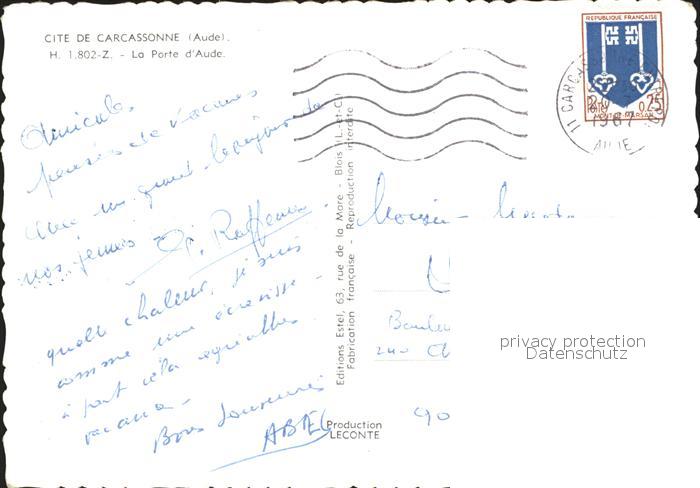 CITE DE CARCASSONNE (Aude).
H. 1.802-Z. - La Porte d'Aude.
Amicales
pensées de vacances
avec un grand
nos jeunes
quelle chaleur, je suis
comme une écrevisse -
à part cela agréables
vacances -
Bons souvenirs
ABEL
Editions Estel, 63, rue de la Mare - Blois (L.-et-C.)
Fabrication française - Reproduction interdite
Production
LECONTE
REPUBLIQUE FRANÇAISE
0,25
MONT-DE-MARSAN
11 CARCASSONNE
1967
AUDE
Monsieur
240
privacy protection
Datenschutz